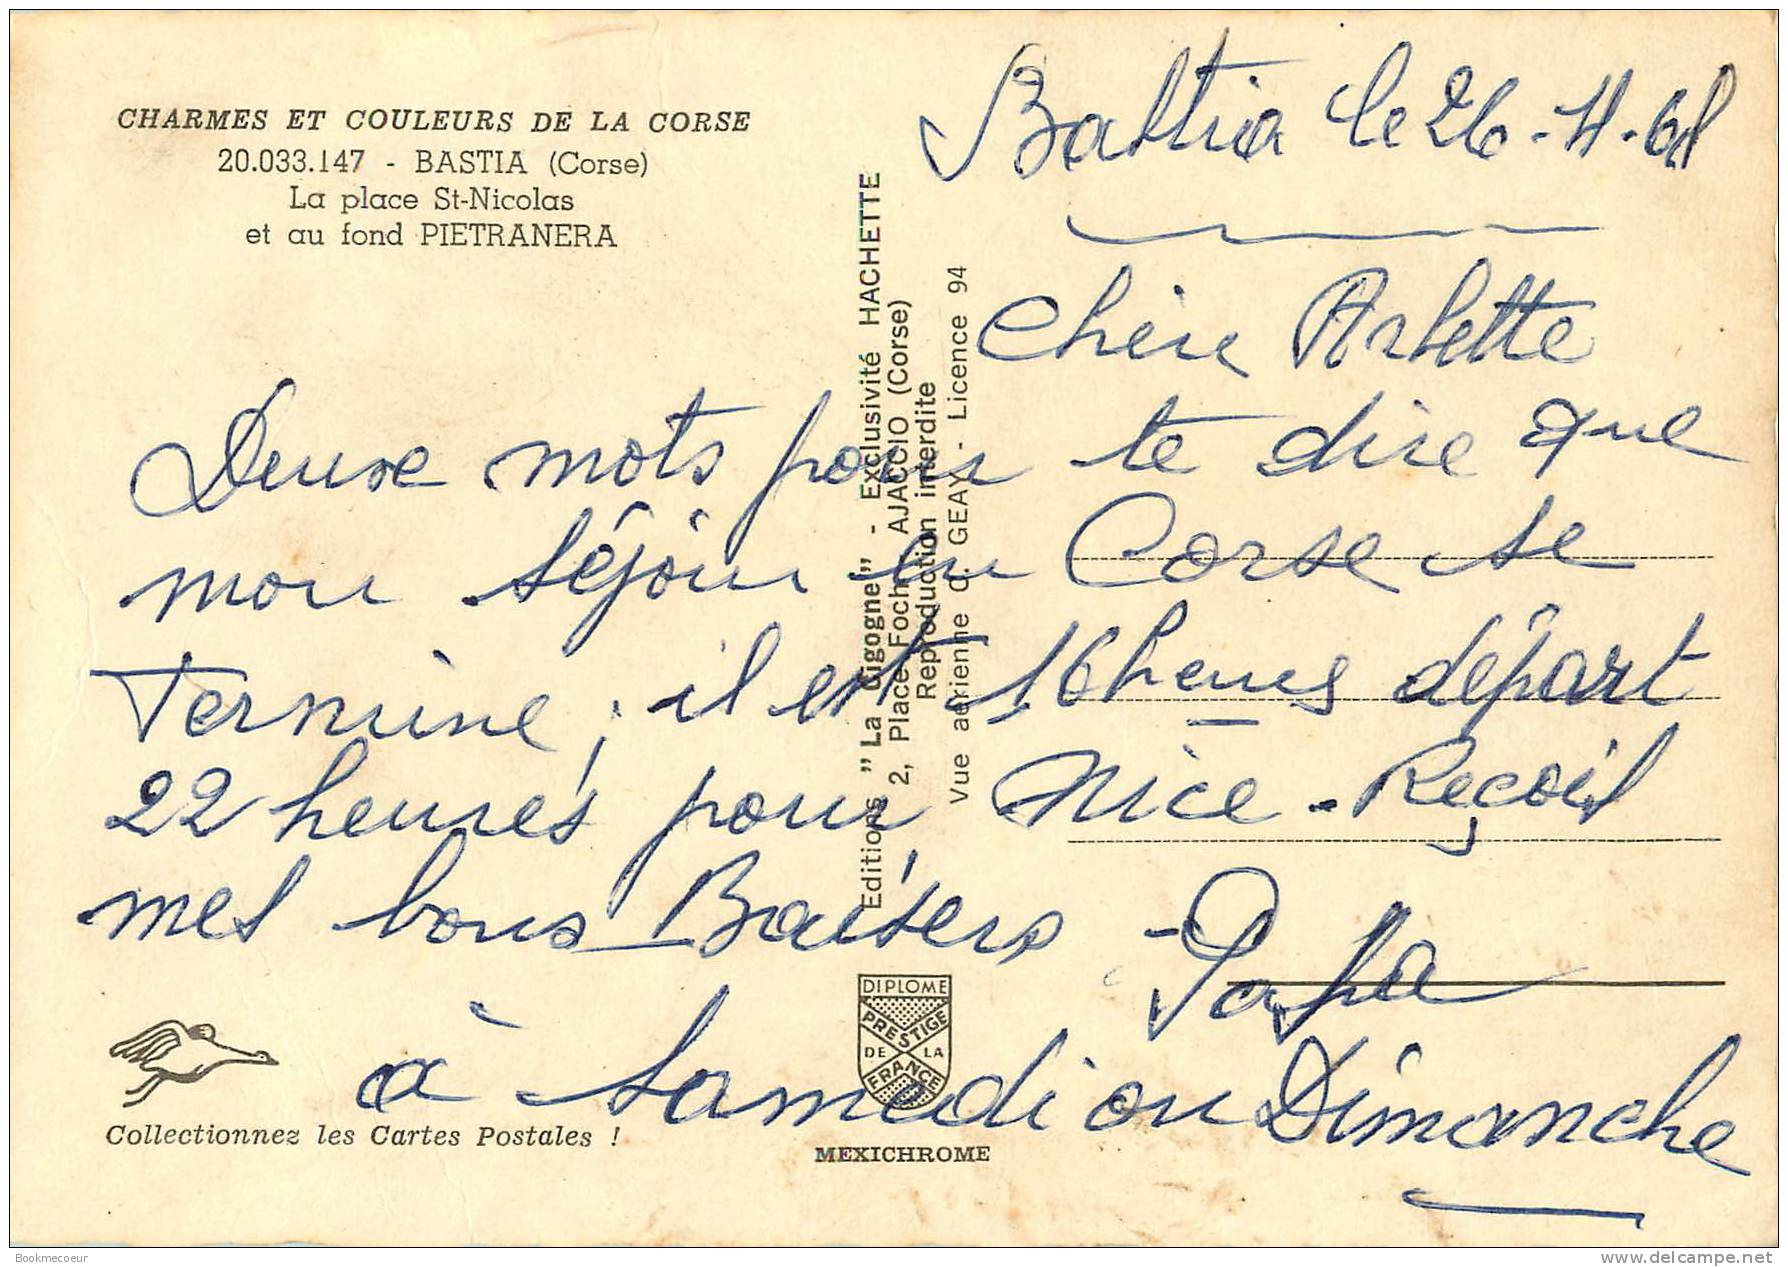 CHARMES ET COULEURS DE LA CORSE
20.033.147 - BASTIA (Corse)
La place St-Nicolas
et au fond PIETRANERA
Bastia le 26-11-68
Chère Arlette
Deuxe mots pour te dire que
mon séjour en Corse se
Termine, il est 16 heures départ
22 heures pour Nice - Reçois
mes bons Baisers - Papa
à samedi ou Dimanche
Editions "La Cigogne" - Exclusivité HACHETTE
2, Place Foch - AJACCIO (Corse)
Reproduction interdite
Vue aérienne C. GEAY - Licence 94
DIPLOME
PRESTIGE
DE LA
FRANCE
Collectionnez les Cartes Postales !
MEXICHROME
Bookmecoeur
www.delcampe.net